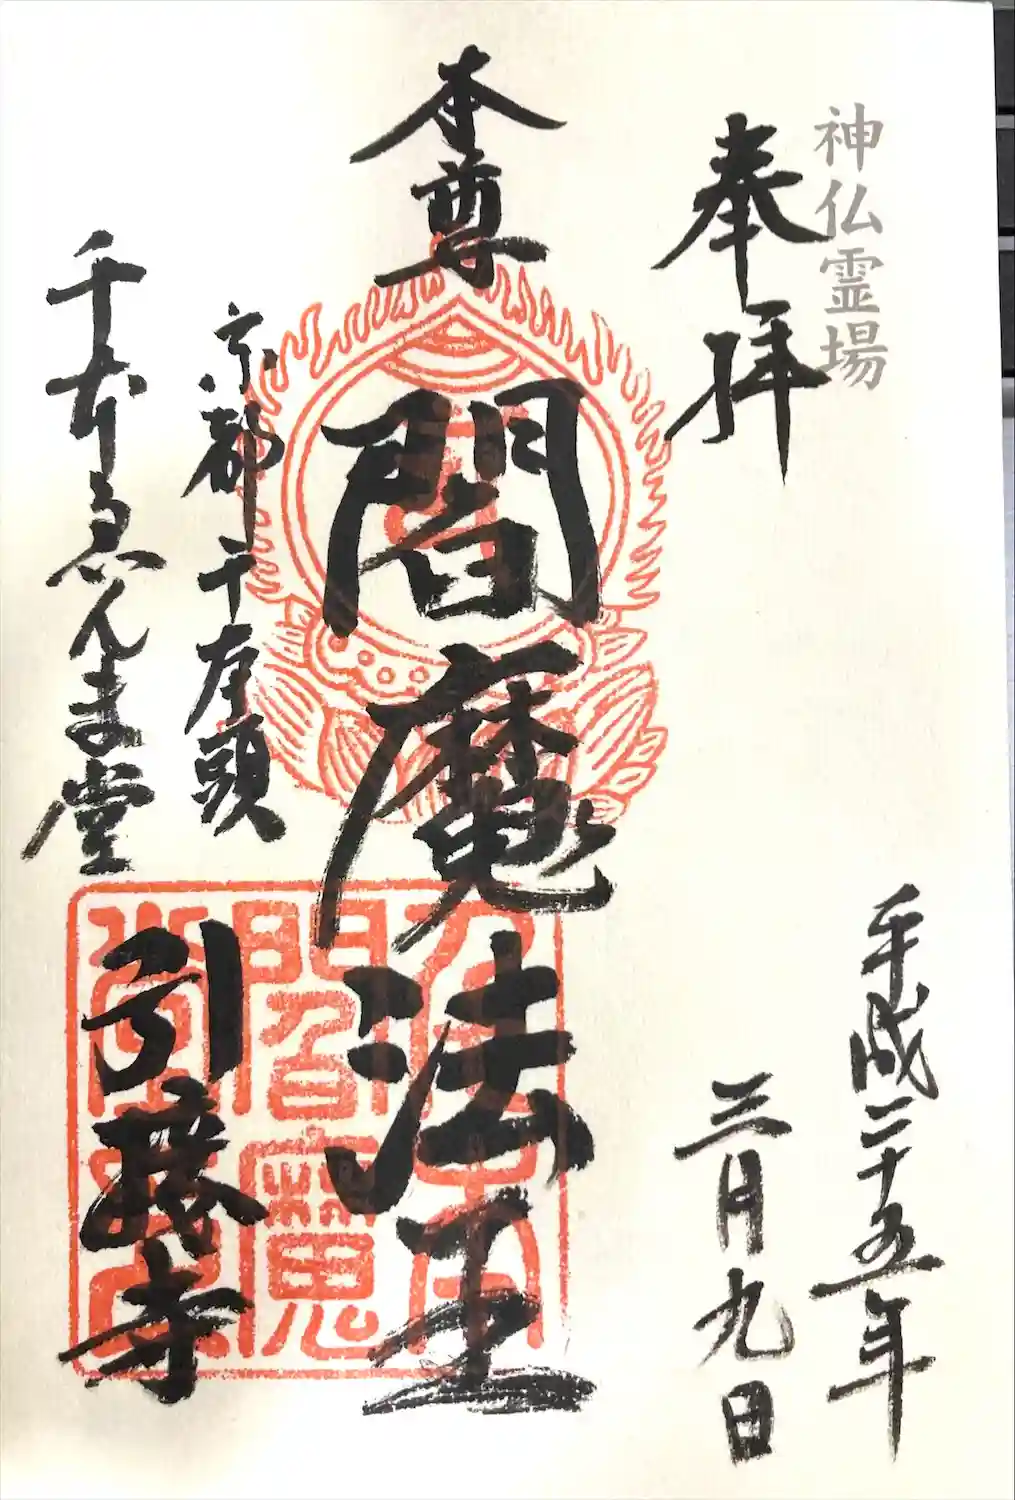 神仏霊場
奉拝
平成二十五年
三月九日
本尊
閻魔法王
京都千本頭
千本ゑんま堂
引接寺